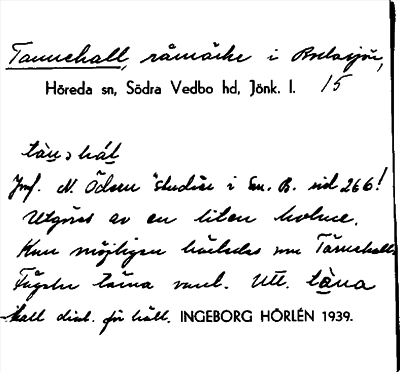 Tarnehall, råmärke i Bredasjön,
Höreda sn, Södra Vedbo hd, Jönk. l. 15
Jmf. N. Ödeen Studier i Sm. B. sid 266!
Utgöres av en liten holme.
Kan möjligen härledas som Tärnehall.
Fågeln tärna vanl. Utt. täna
hall dial. för häll. INGEBORG HÖRLÉN 1939.